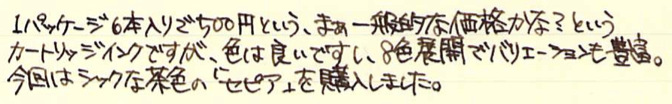 1パッケージ6本入りで500円という、まぁ一般的な価格かな?という
カートリッジインクですが、色は良いですし、8色展開でバリエーションも豊富。
今回はシックな茶色の「セピア」を購入しました。